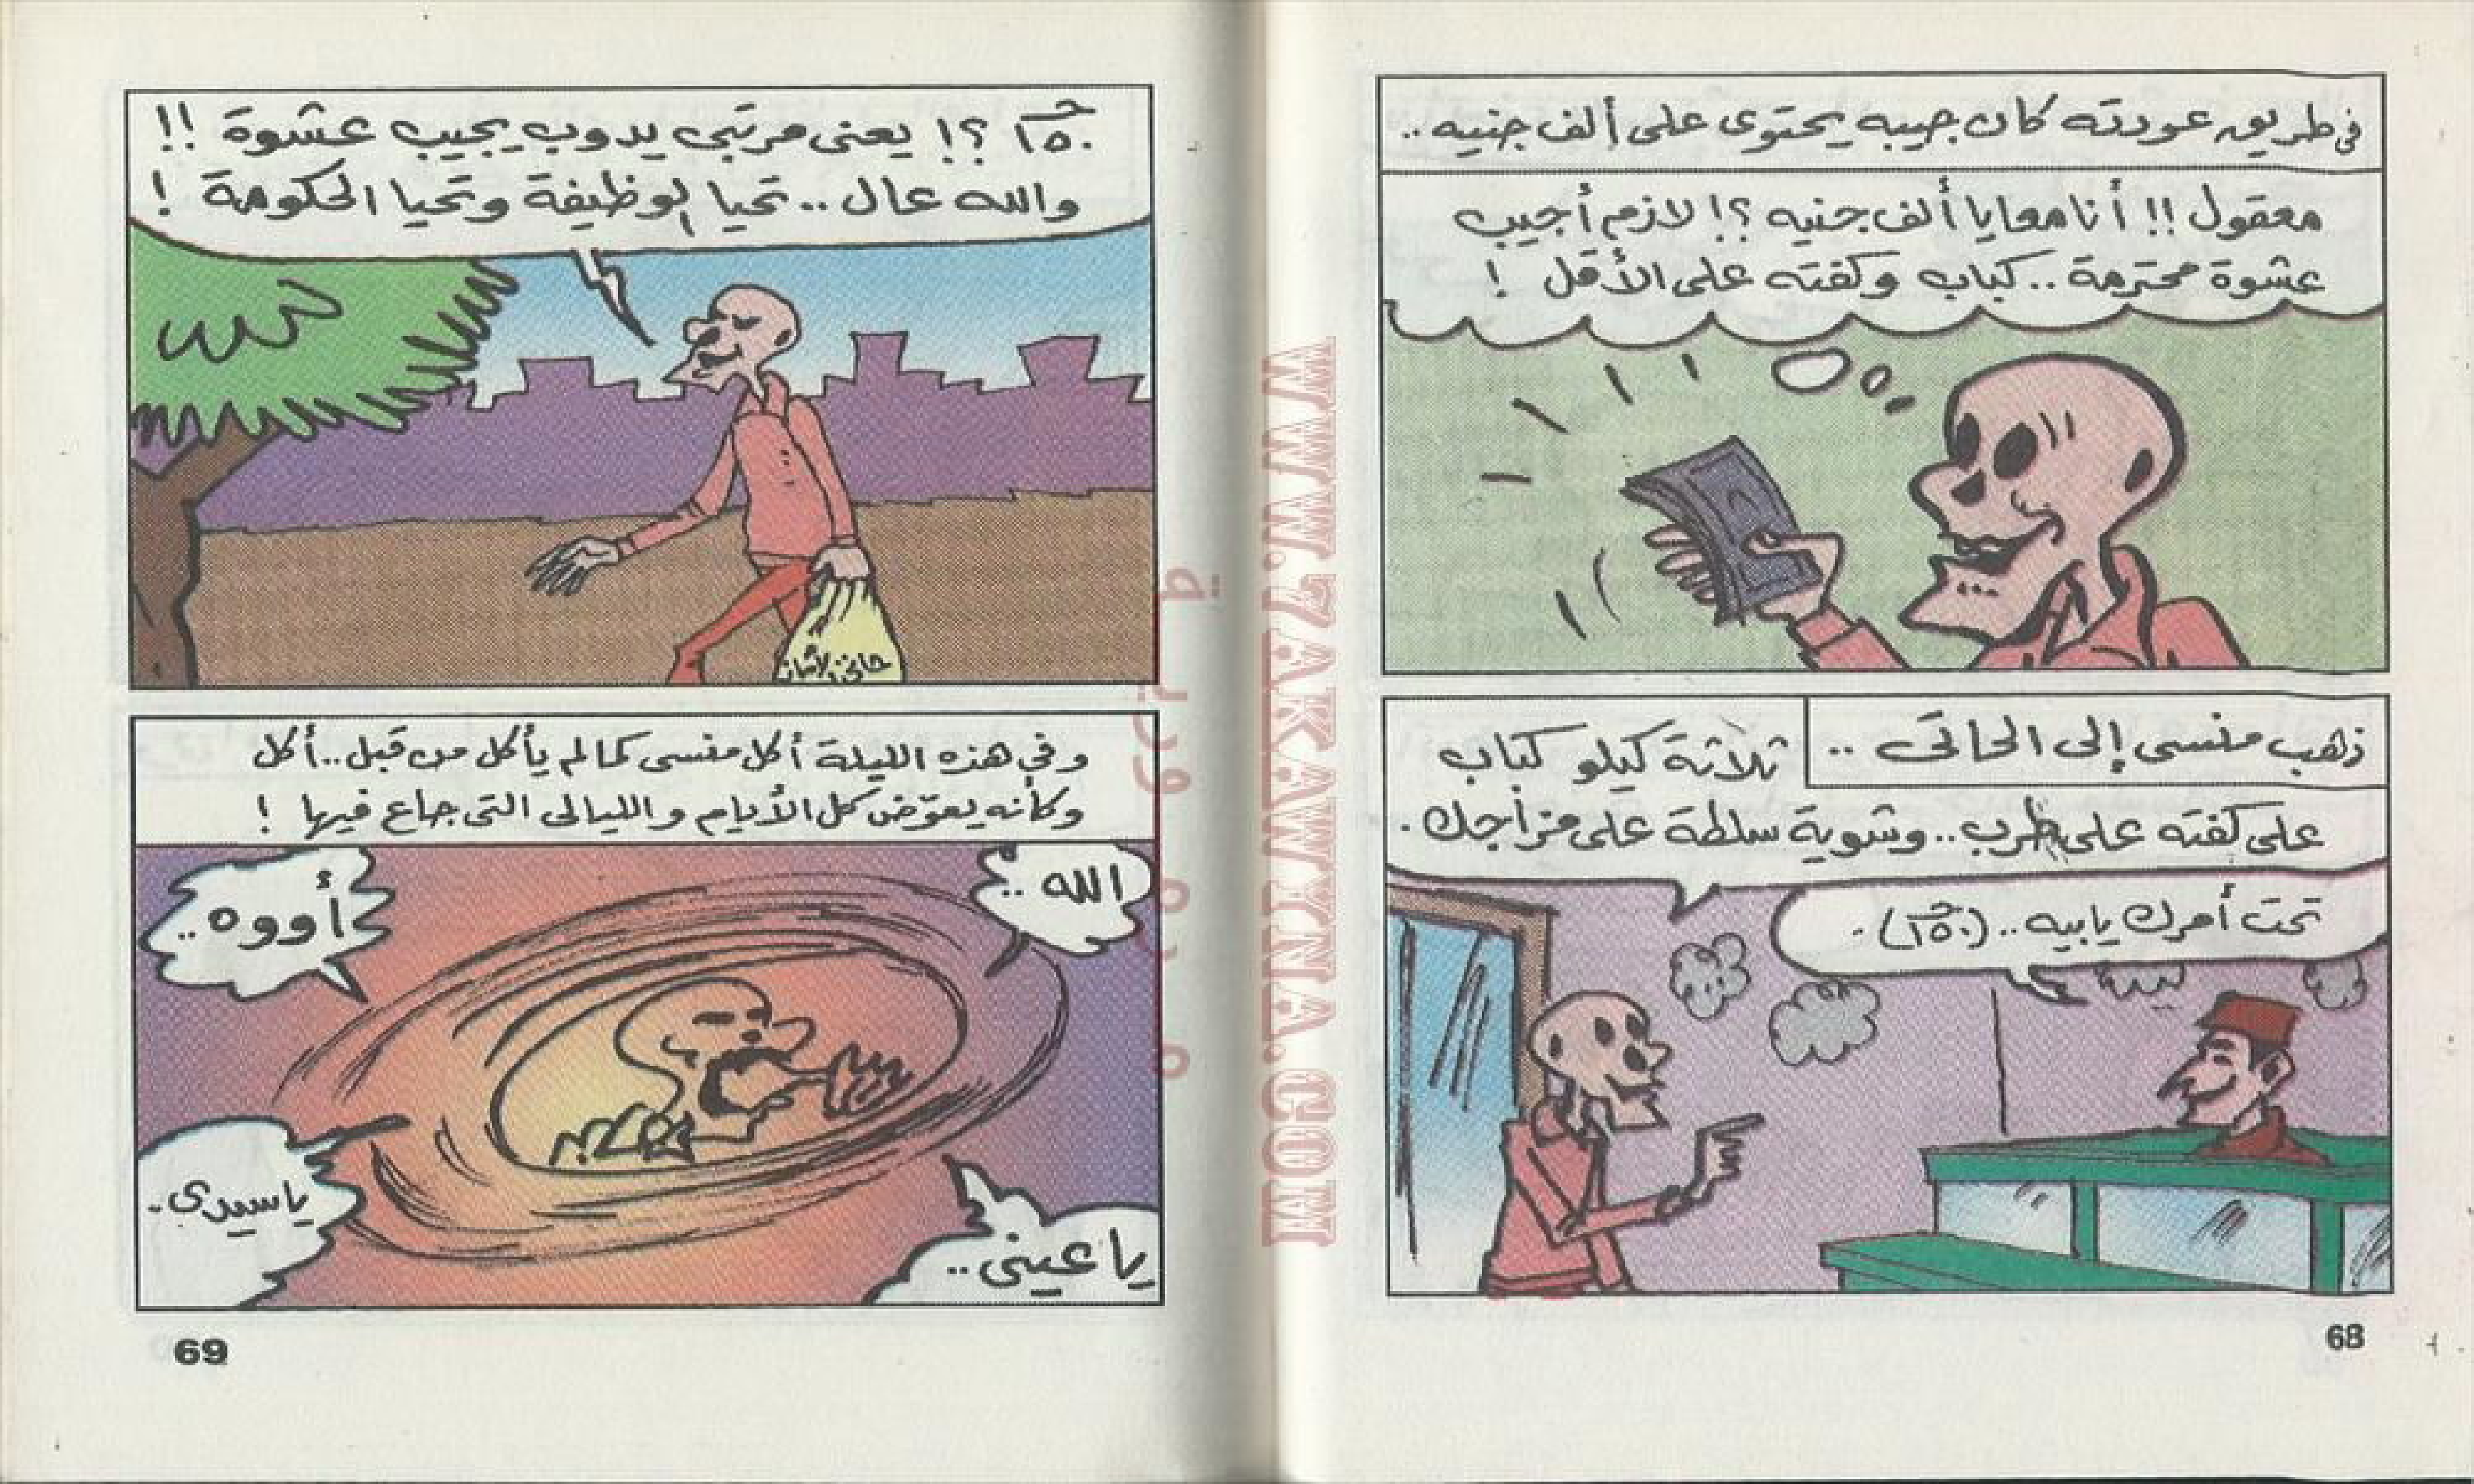 فى طريق عودته كان جيبه يحتوى على ألف جنيه ..
معقول !! أنا معايا ألف جنيه ؟! لازم أجيب
عشوة محترمة .. كباب وكفته على الأقل !
ذهب منسى إلى الحاتى ..
ثلاثة كيلو كباب
على كفته على طرب .. وشوية سلطة على مزاجك .
تحت أمرك يا بيه .. (١٥٠جـ) .
68
١٥٠جـ ؟! يعنى مرتبى يدوب يجيب عشوة !!
والله عال .. تحيا الوظيفة وتحيا الحكومة !
حاتى
وفى هذه الليلة أكل منسى كما لم يأكل من قبل .. أكل
وكأنه يعوّض كل الأيام والليالى التى جاع فيها !
الله ..
أووه ..
يا عينى ..
يا سيدى .
69
WWW.7AKAWYNA.COM